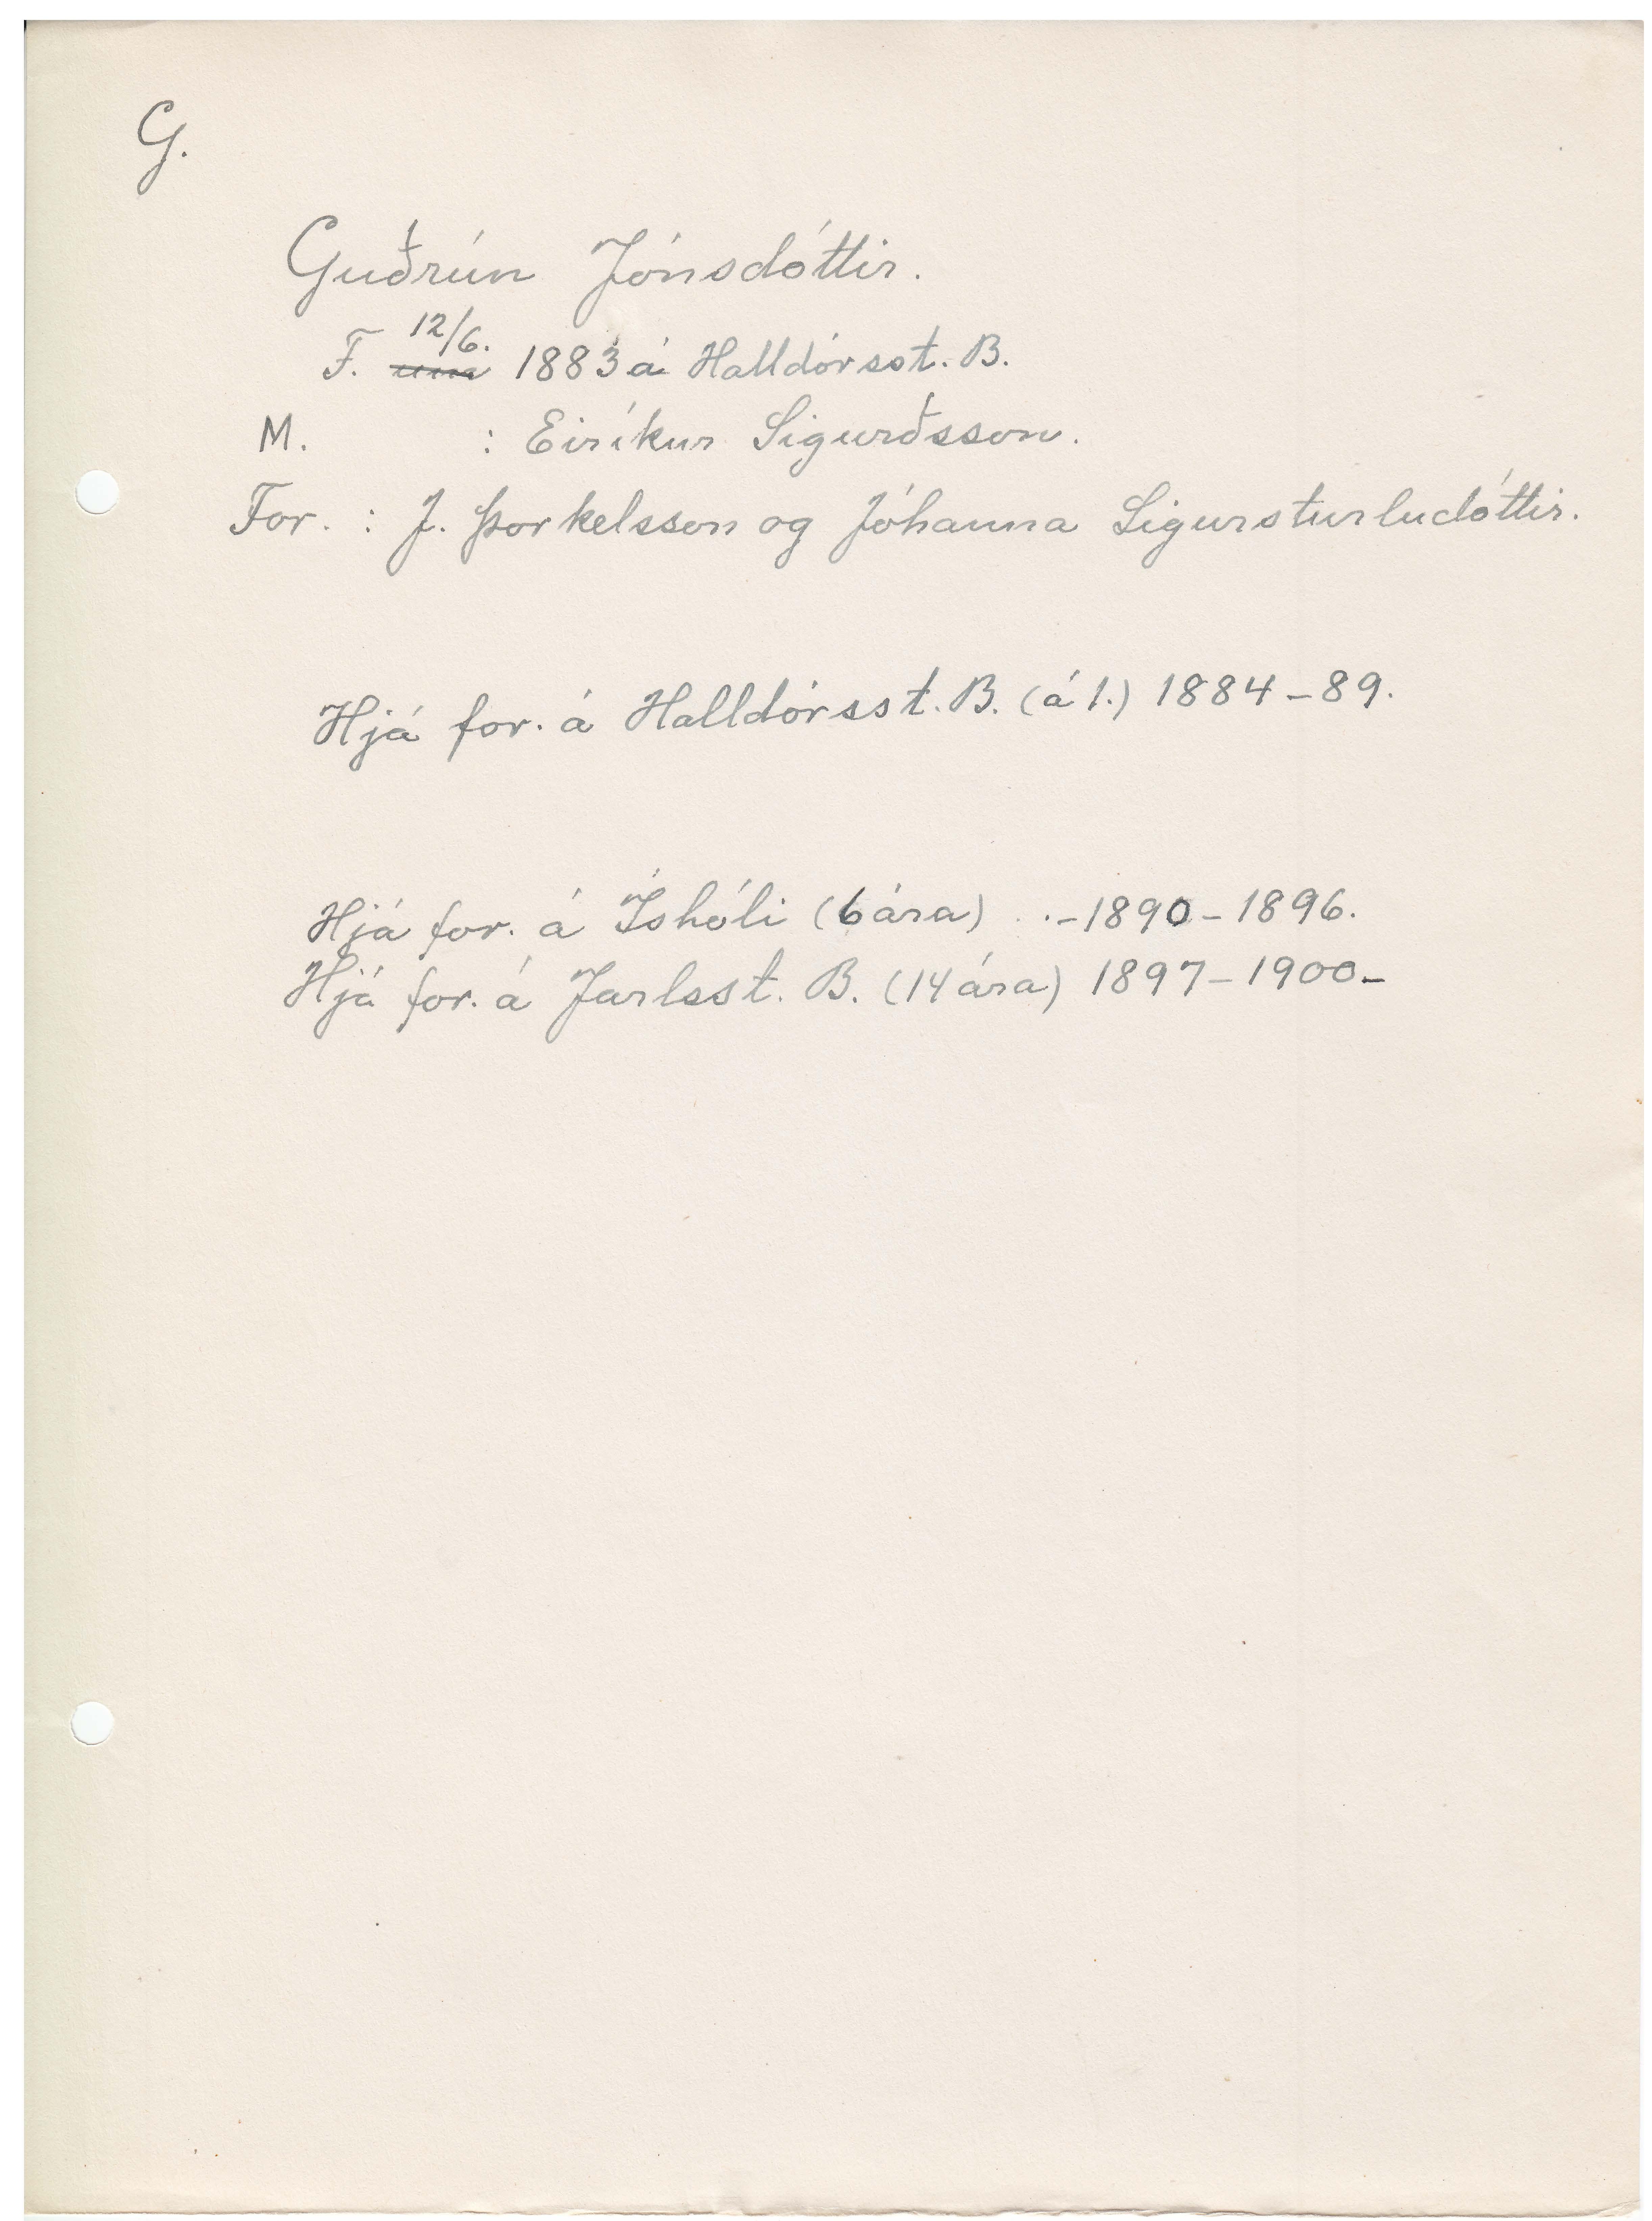 G.
Guðrún Jónsdóttir.
12/6.
F. um 1883 á Halldórsst. B.
M. : Eiríkur Sigurðsson.
For. : J. Þorkelsson og Jóhanna Sigursturludóttir.
Hjá for. á Halldórsst. B. (á 1.) 1884-89.
Hjá for. á Íshóli (6 ára) .-1890-1896.
Hjá for. á Jarlsst. B. (14 ára) 1897-1900-